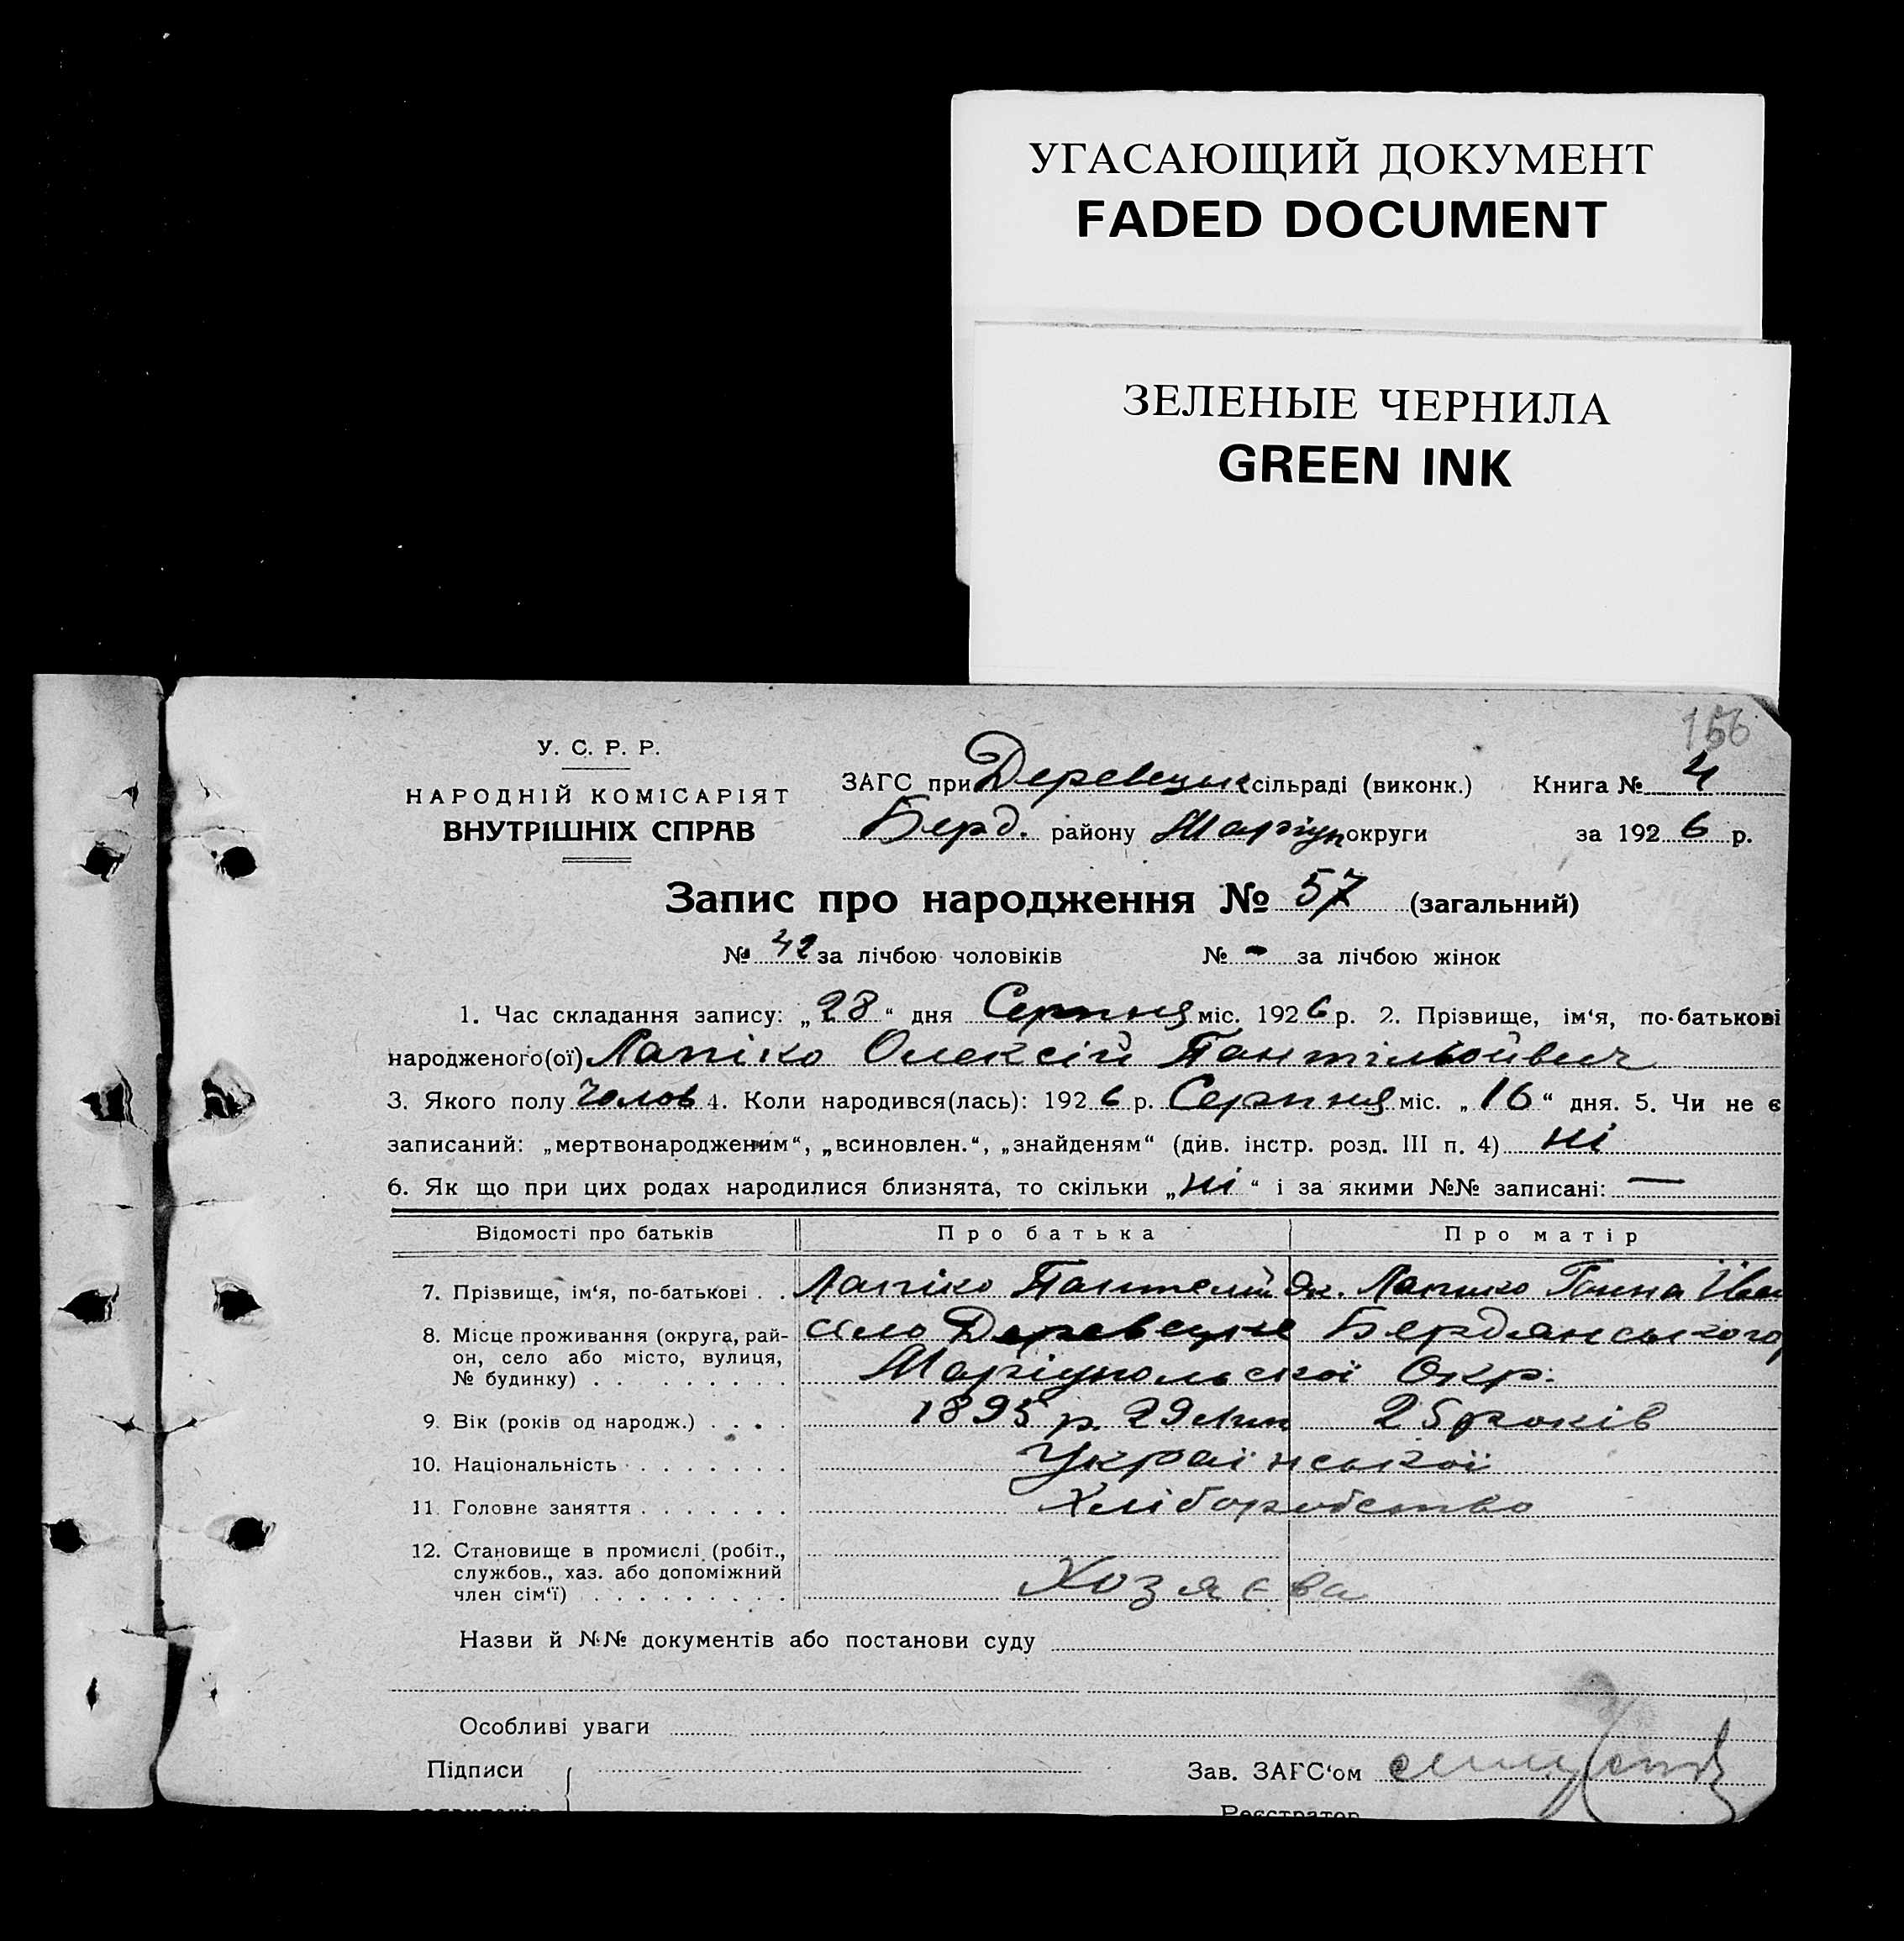 УГАСАЮЩИЙ ДОКУМЕНТ
FADED DOCUMENT
ЗЕЛЕНЫЕ ЧЕРНИЛА
GREEN INK
156
У. С. Р. Р.
НАРОДНІЙ КОМІСАРІЯТ
ВНУТРІШНІХ СПРАВ
ЗАГС при Деревецьк сільраді (виконк.) Книга № 4
Берд. району Маріуп округи за 1926 р.
Запис про народження № 57 (загальний)
№ 42 за лічбою чоловіків № - за лічбою жінок
1. Час складання запису: „28“ дня Серпня міс. 1926 р. 2. Прізвище, ім‘я, по-батькові
народженого(ої) Лапіко Олексій Пантільойвич
3. Якого полу Чолов 4. Коли народився(лась): 1926 р. Серпня міс. „16“ дня. 5. Чи не є
записаний: „мертвонародженим“, „всиновлен.“, „знайденям“ (див. інстр. розд. III п. 4) ні
6. Як що при цих родах народилися близнята, то скільки „ні“ і за якими №№ записані: —
Відомості про батьків Про батька Про матір
7. Прізвище, ім‘я, по-батькові . . Лапіко Пантелій Як. Лапико Ганна Іван
8. Місце проживання (округа, рай-
он, село або місто, вулиця,
№ будинку) . . . . . . . . .
село Деревецьке Бердянського
Маріупольської Окр.
9. Вік (років од народж.) . . . . 1895 р. 29 Лип 25 років
10. Національність . . . . . . . Української
11. Головне заняття . . . . . . . Хлiборобство
12. Становище в промислі (робіт.,
службов., хаз. або допоміжний
член сім‘ї) . . . . . . . . . .
Хозяєва
Назви й №№ документів або постанови суду
Особливі уваги
Підписи
Зав. ЗАГС‘ом
Реєстратор